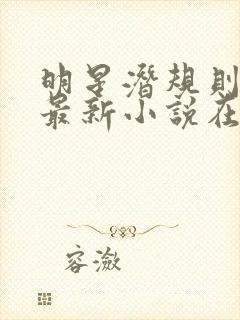 明星潛規則
最新小說在
容潋